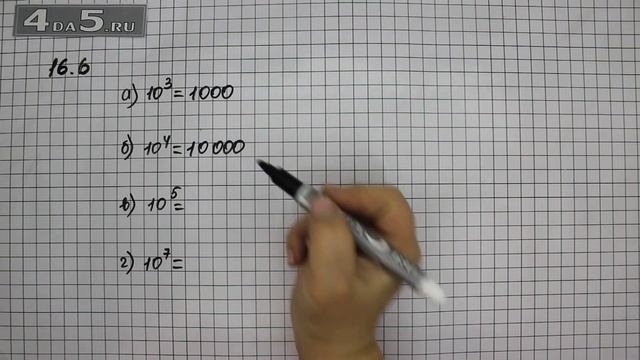 4DA5.RU
16.6
а) 10³ = 1000
б) 10⁴ = 10 000
в) 10⁵ =
г) 10⁷ =